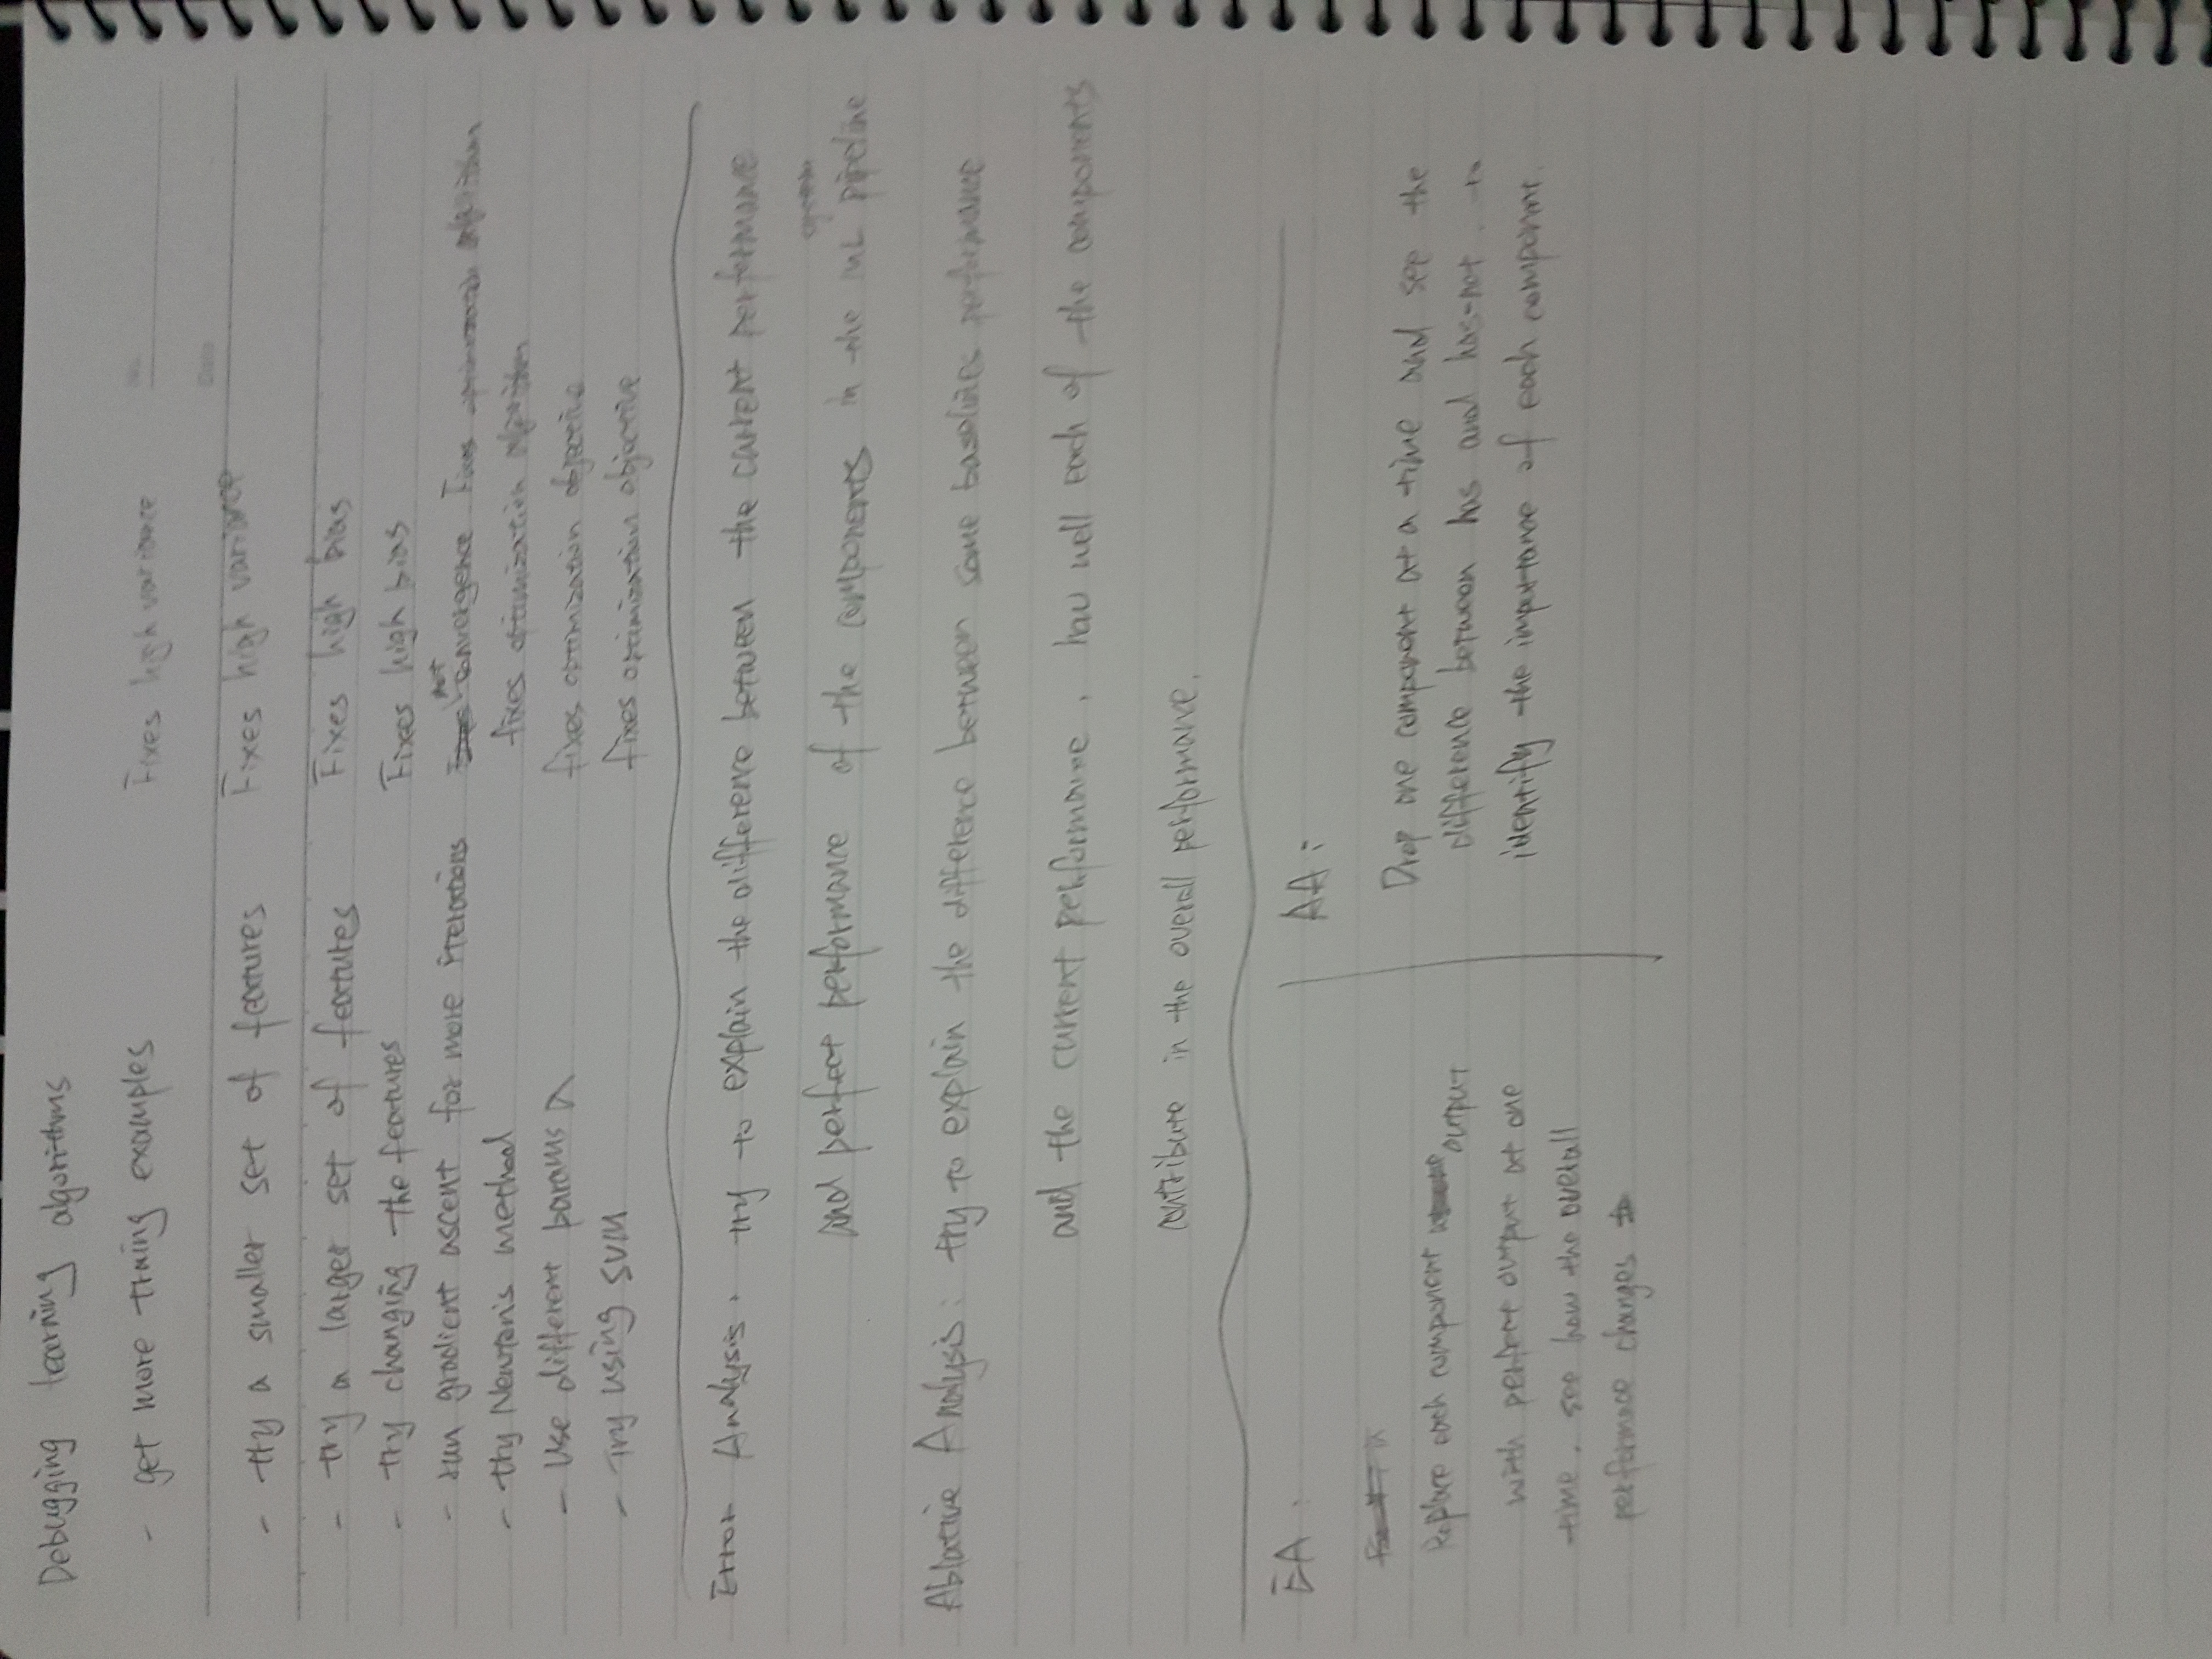 Debugging learning algorithms
- get more traing examples Fixes high variance
No.
Date
- try a smaller set of features Fixes high variance
- try a larger set of features Fixes high bias
- try changing the features Fixes high bias
- run gradient ascent for more iterations not convergence Fixes optimization algorithm
- try Newton's method fixes optimization algorithm
- Use different params λ fixes optimization objective
- Try using SVM fixes optimization objective
Error Analysis: try to explain the difference between the current performance
and perfect performance of the components in the ML system pipeline
Ablative Analysis: try to explain the difference between some baselines performance
and the current performance, how well each of the components
contribute in the overall performance.
EA:
Replace each component output
with perfect output at one
time. see how the overall
performace changes
AA:
Drop one component at a time and see the
difference between has and has-not. to
identify the importance of each component.